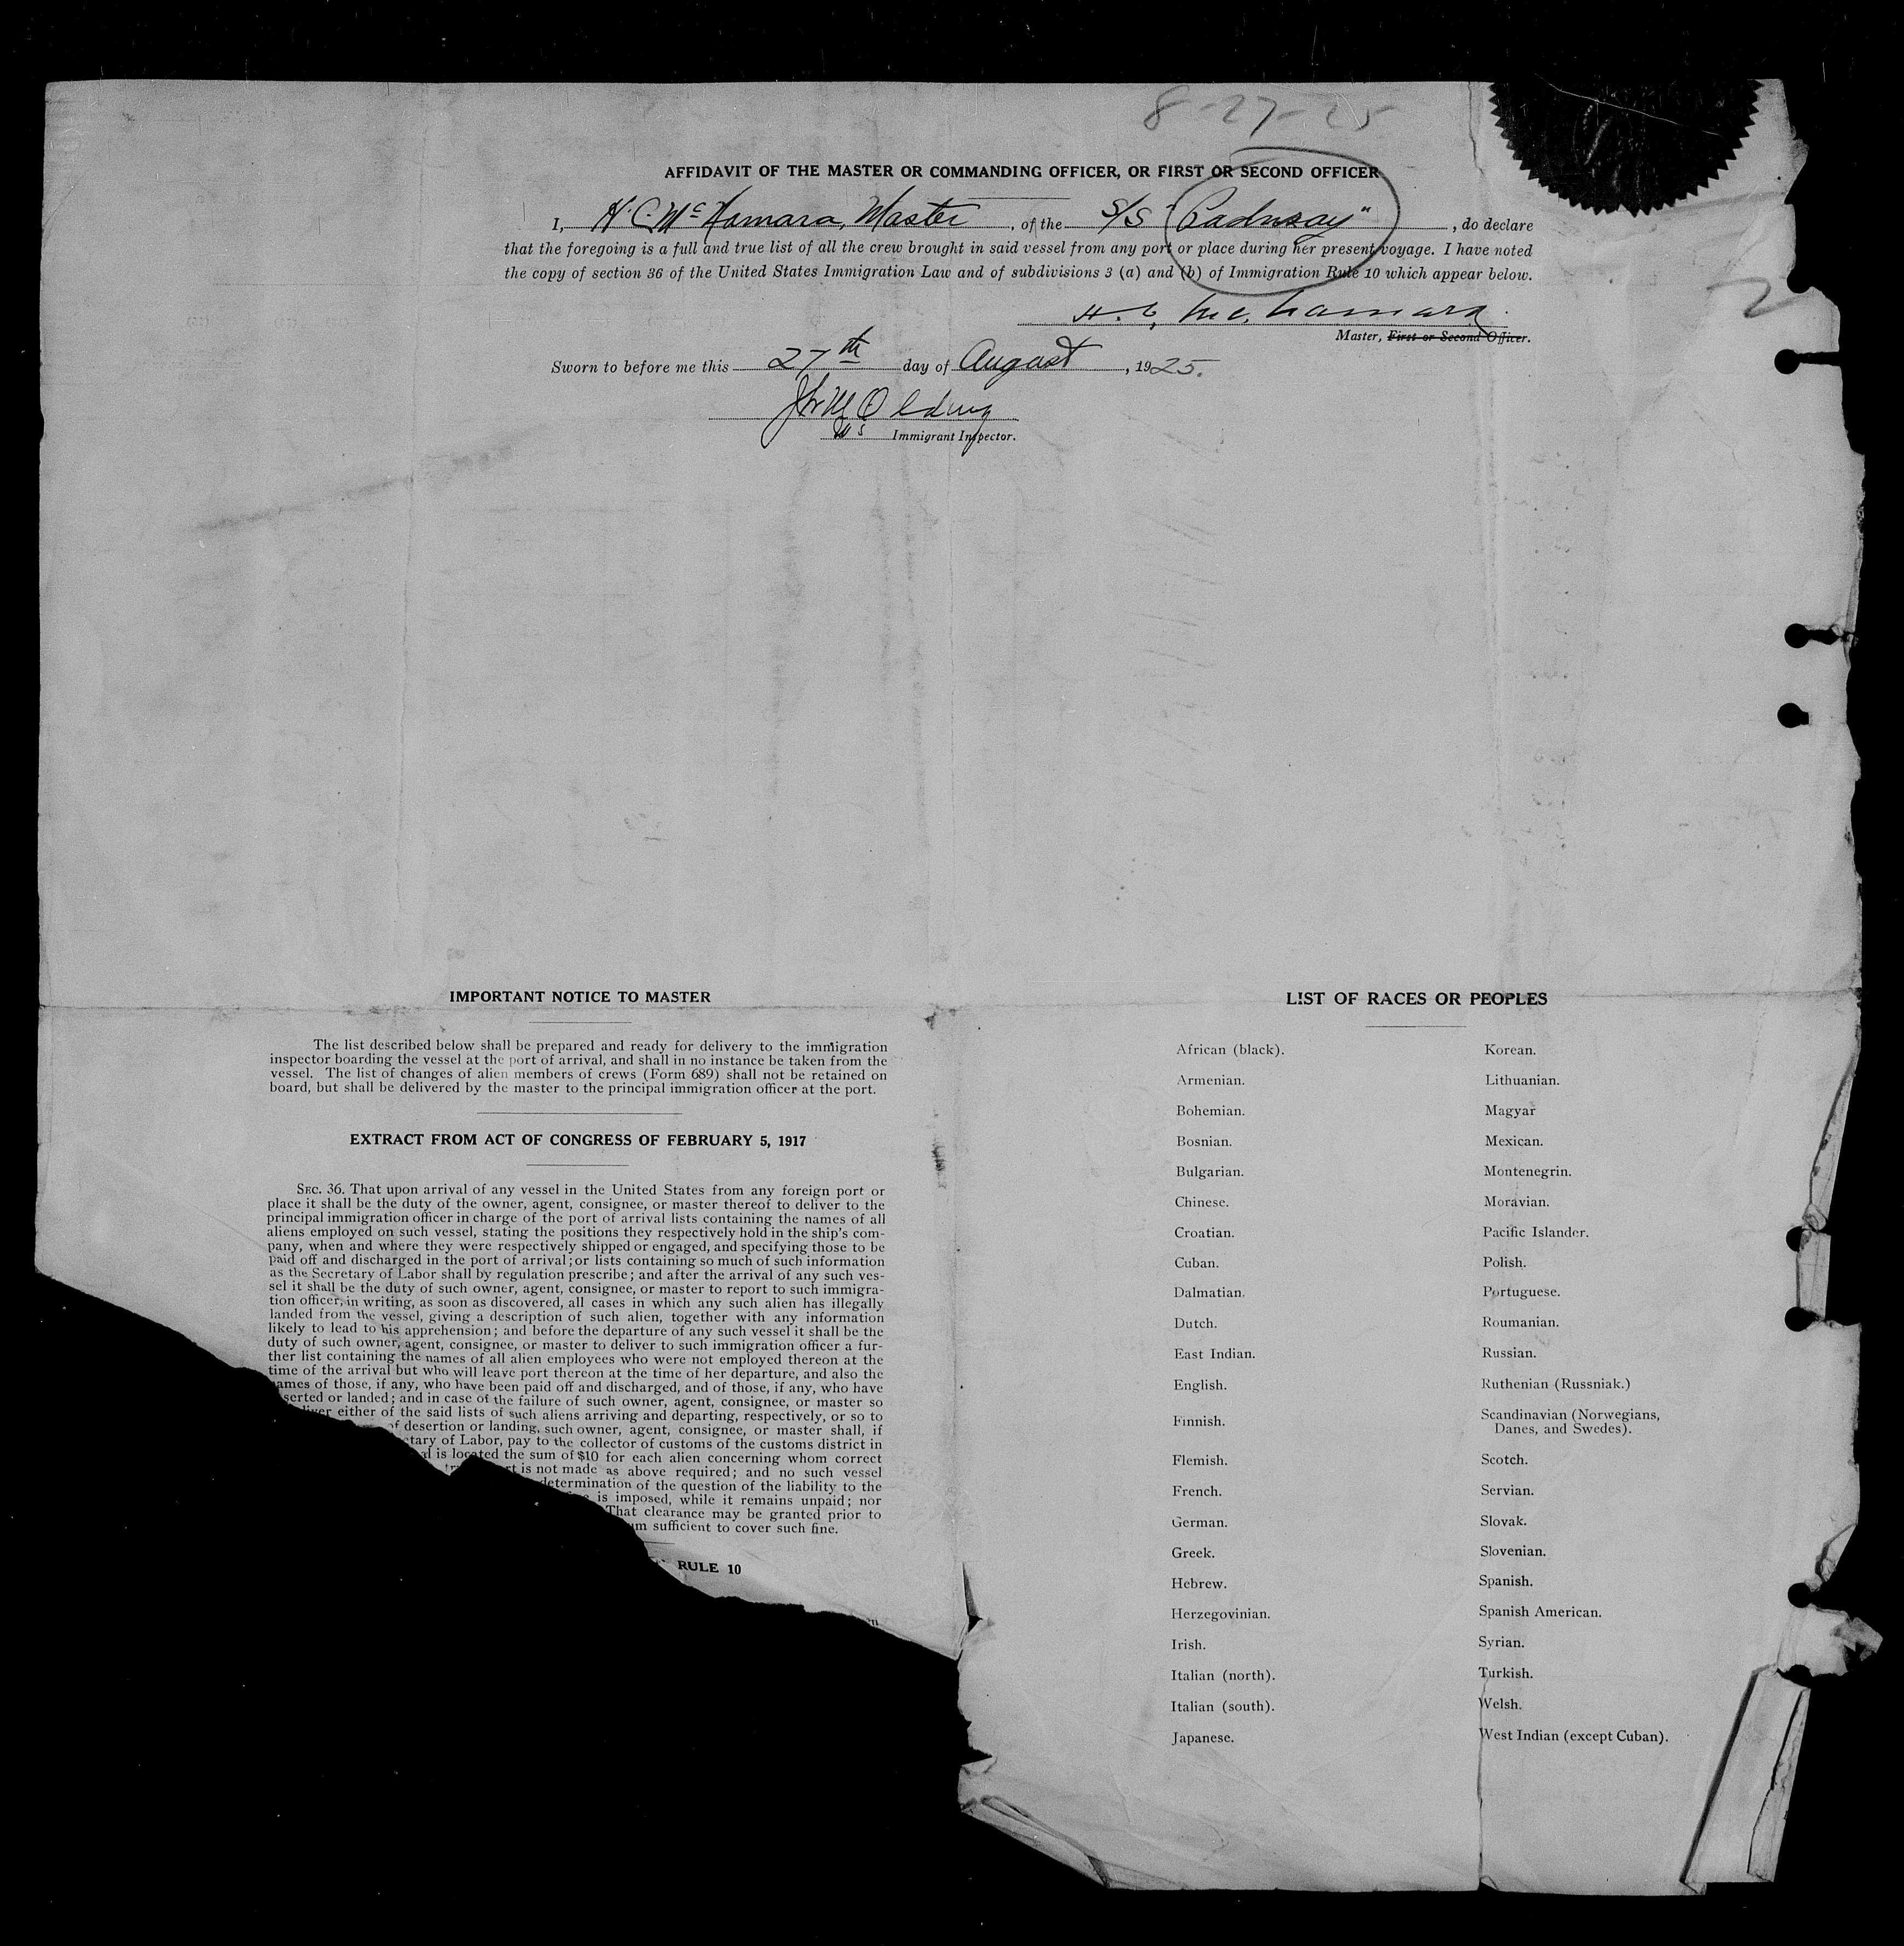 8-27-25
AFFIDAVIT OF THE MASTER OR COMMANDING OFFICER, OR FIRST OR SECOND OFFICER
I, H. C. McNamara, Master, of the S/S "Padnsay", do declare
that the foregoing is a full and true list of all the crew brought in said vessel from any port or place during her present voyage. I have noted
the copy of section 36 of the United States Immigration Law and of subdivisions 3 (a) and (b) of Immigration Rule 10 which appear below.
2
H. C. McNamara
Master, First or Second Officer.
Sworn to before me this 27th day of August, 1925.
Immigrant Inspector.
IMPORTANT NOTICE TO MASTER
The list described below shall be prepared and ready for delivery to the immigration
inspector boarding the vessel at the port of arrival, and shall in no instance be taken from the
vessel. The list of changes of alien members of crews (Form 689) shall not be retained on
board, but shall be delivered by the master to the principal immigration officer at the port.
EXTRACT FROM ACT OF CONGRESS OF FEBRUARY 5, 1917
SEC. 36. That upon arrival of any vessel in the United States from any foreign port or
place it shall be the duty of the owner, agent, consignee, or master thereof to deliver to the
principal immigration officer in charge of the port of arrival lists containing the names of all
aliens employed on such vessel, stating the positions they respectively hold in the ship's com-
pany, when and where they were respectively shipped or engaged, and specifying those to be
paid off and discharged in the port of arrival; or lists containing so much of such information
as the Secretary of Labor shall by regulation prescribe; and after the arrival of any such ves-
sel it shall be the duty of such owner, agent, consignee, or master to report to such immigra-
tion officer, in writing, as soon as discovered, all cases in which any such alien has illegally
landed from the vessel, giving a description of such alien, together with any information
likely to lead to his apprehension; and before the departure of any such vessel it shall be the
duty of such owner, agent, consignee, or master to deliver to such immigration officer a fur-
ther list containing the names of all alien employees who were not employed thereon at the
time of the arrival but who will leave port thereon at the time of her departure, and also the
ames of those, if any, who have been paid off and discharged, and of those, if any, who have
serted or landed; and in case of the failure of such owner, agent, consignee, or master so
liver either of the said lists of such aliens arriving and departing, respectively, or so to
of desertion or landing, such owner, agent, consignee, or master shall, if
etary of Labor, pay to the collector of customs of the customs district in
al is located the sum of $10 for each alien concerning whom correct
rt is not made as above required; and no such vessel
determination of the question of the liability to the
is imposed, while it remains unpaid; nor
That clearance may be granted prior to
um sufficient to cover such fine.
RULE 10
LIST OF RACES OR PEOPLES
African (black).
Armenian.
Bohemian.
Bosnian.
Bulgarian.
Chinese.
Croatian.
Cuban.
Dalmatian.
Dutch.
East Indian.
English.
Finnish.
Flemish.
French.
German.
Greek.
Hebrew.
Herzegovinian.
Irish.
Italian (north).
Italian (south).
Japanese.
Korean.
Lithuanian.
Magyar
Mexican.
Montenegrin.
Moravian.
Pacific Islander.
Polish.
Portuguese.
Roumanian.
Russian.
Ruthenian (Russniak.)
Scandinavian (Norwegians,
Danes, and Swedes).
Scotch.
Servian.
Slovak.
Slovenian.
Spanish.
Spanish American.
Syrian.
Turkish.
Welsh.
West Indian (except Cuban).